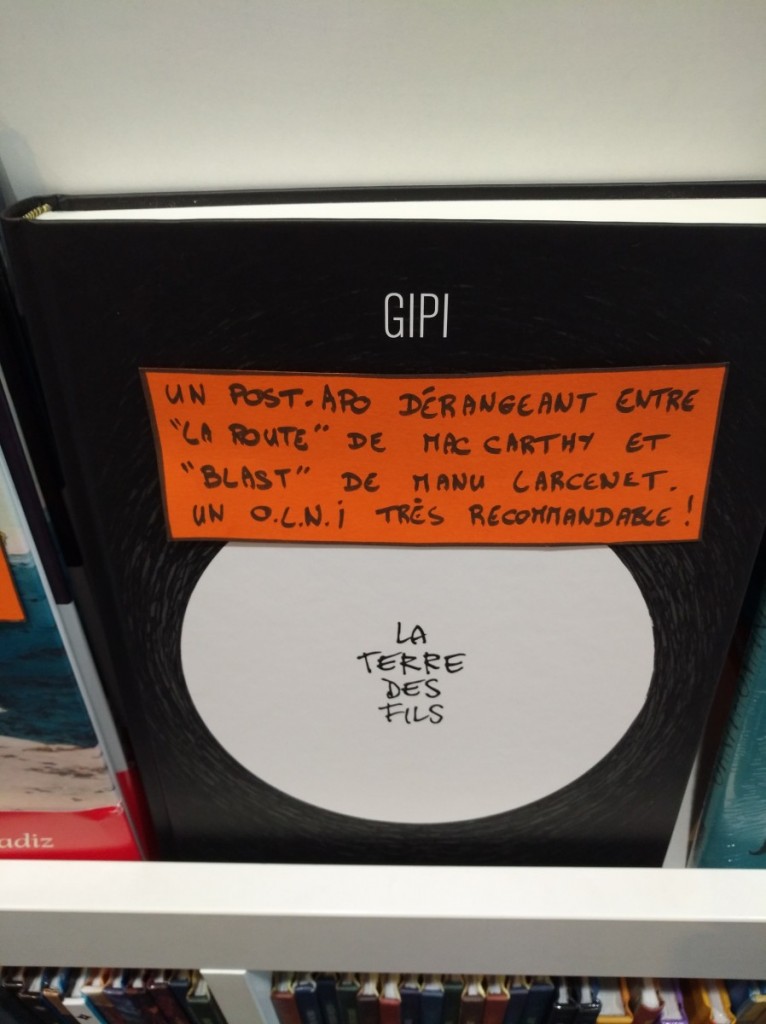 GIPI
UN POST.APO DÉRANGEANT ENTRE
"LA ROUTE" DE MAC CARTHY ET
"BLAST" DE MANU LARCENET.
UN O.L.N.i TRÈS RECOMMANDABLE !
LA
TERRE
DES
FILS
adiz